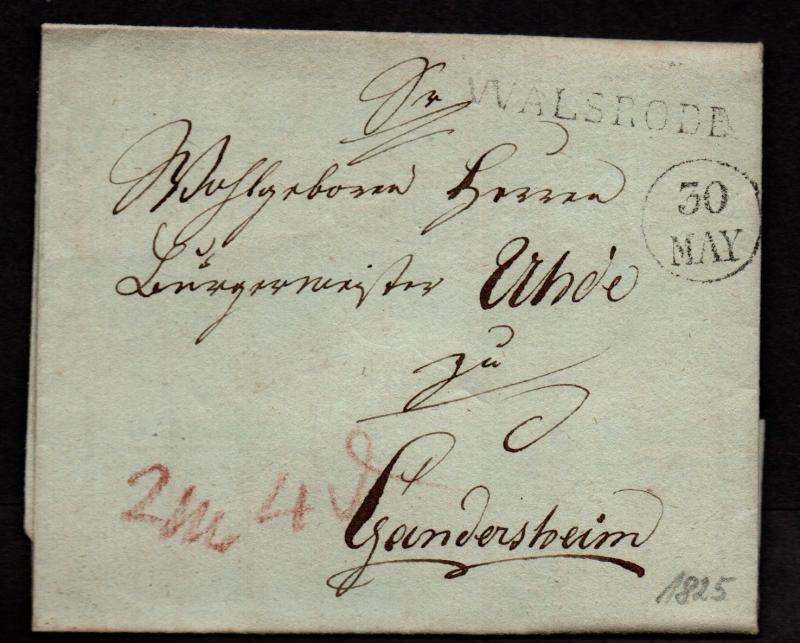 Sr
WALSRODE
Wohlgeboren Herren
30
MAY
Bürgermeister Uhde
zu
2 m 4 d
Gandersheim
1825